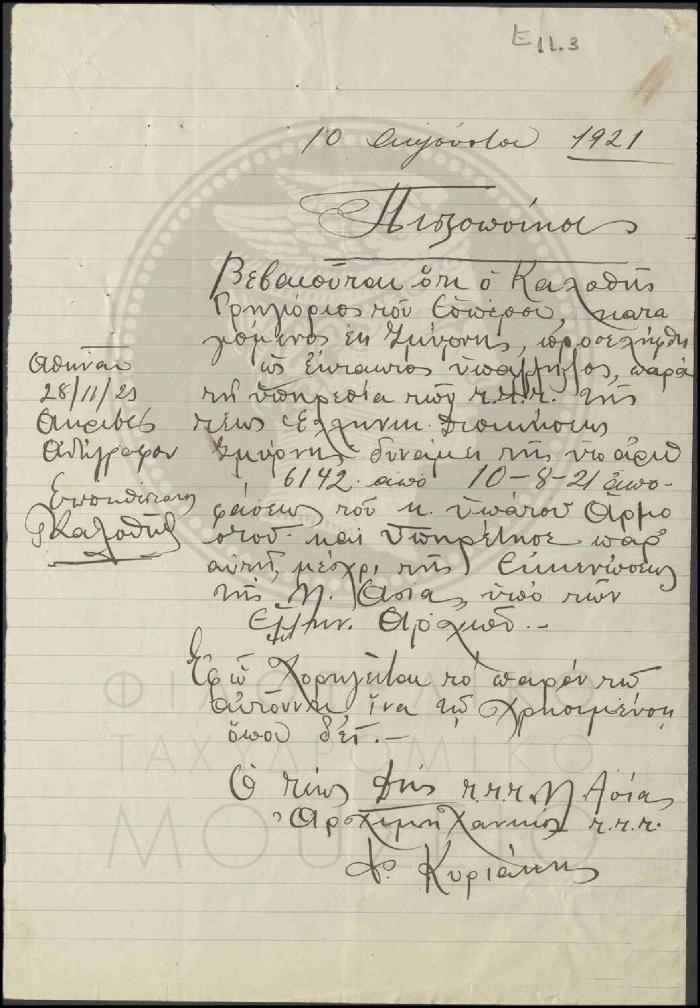 E 11.3
10 Αυγούστου 1921
Πιστοποίησις
Βεβαιούται ότι ο Καλοθής
Γρηγόριος του Εσπέρου, κατα
γόμενος εκ Σμύρνης, προσελήφθη
ως έκτακτος υπάλληλος, παρά
τη υπηρεσία των τ.τ.τ. της
τέως Ελληνικ. Διοικήσεως
Σμύρνης δυνάμει της υπ' αριθ
6142 από 10-8-21 απο-
φάσεως του κ. υπάτου Αρμο
στού και υπηρέτησε παρ'
αυτή, μέχρι της Εκκενώσεως
της Μ. Ασίας, υπό των
Ελλην. Αρχών.-
Εφ' ώ χορηγείται το παρόν τω
αιτούντι ίνα τω χρησιμεύση
όπου δει.-
Ο τέως Δ/τής τ.τ.τ. Μ. Ασίας
Αρχιμηχανικός τ.τ.τ.
Κυριάκης
Αθήναι
28/11/29
Ακριβές
Αντίγραφον
Γ Καλοθής
ΦΙΛΟΤΕΛΙΚΟ
ΤΑΧΥΔΡΟΜΙΚΟ
ΜΟΥΣΕΙΟ